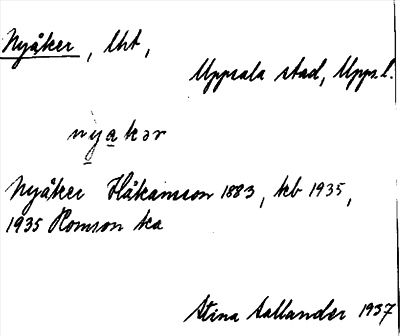 Nyåker, Lht,
Uppsala stad, Uppl.
nyakər
Nyåker Håkamson 1883, kb 1935,
1935 Romson ka
Stina Sallander 1937